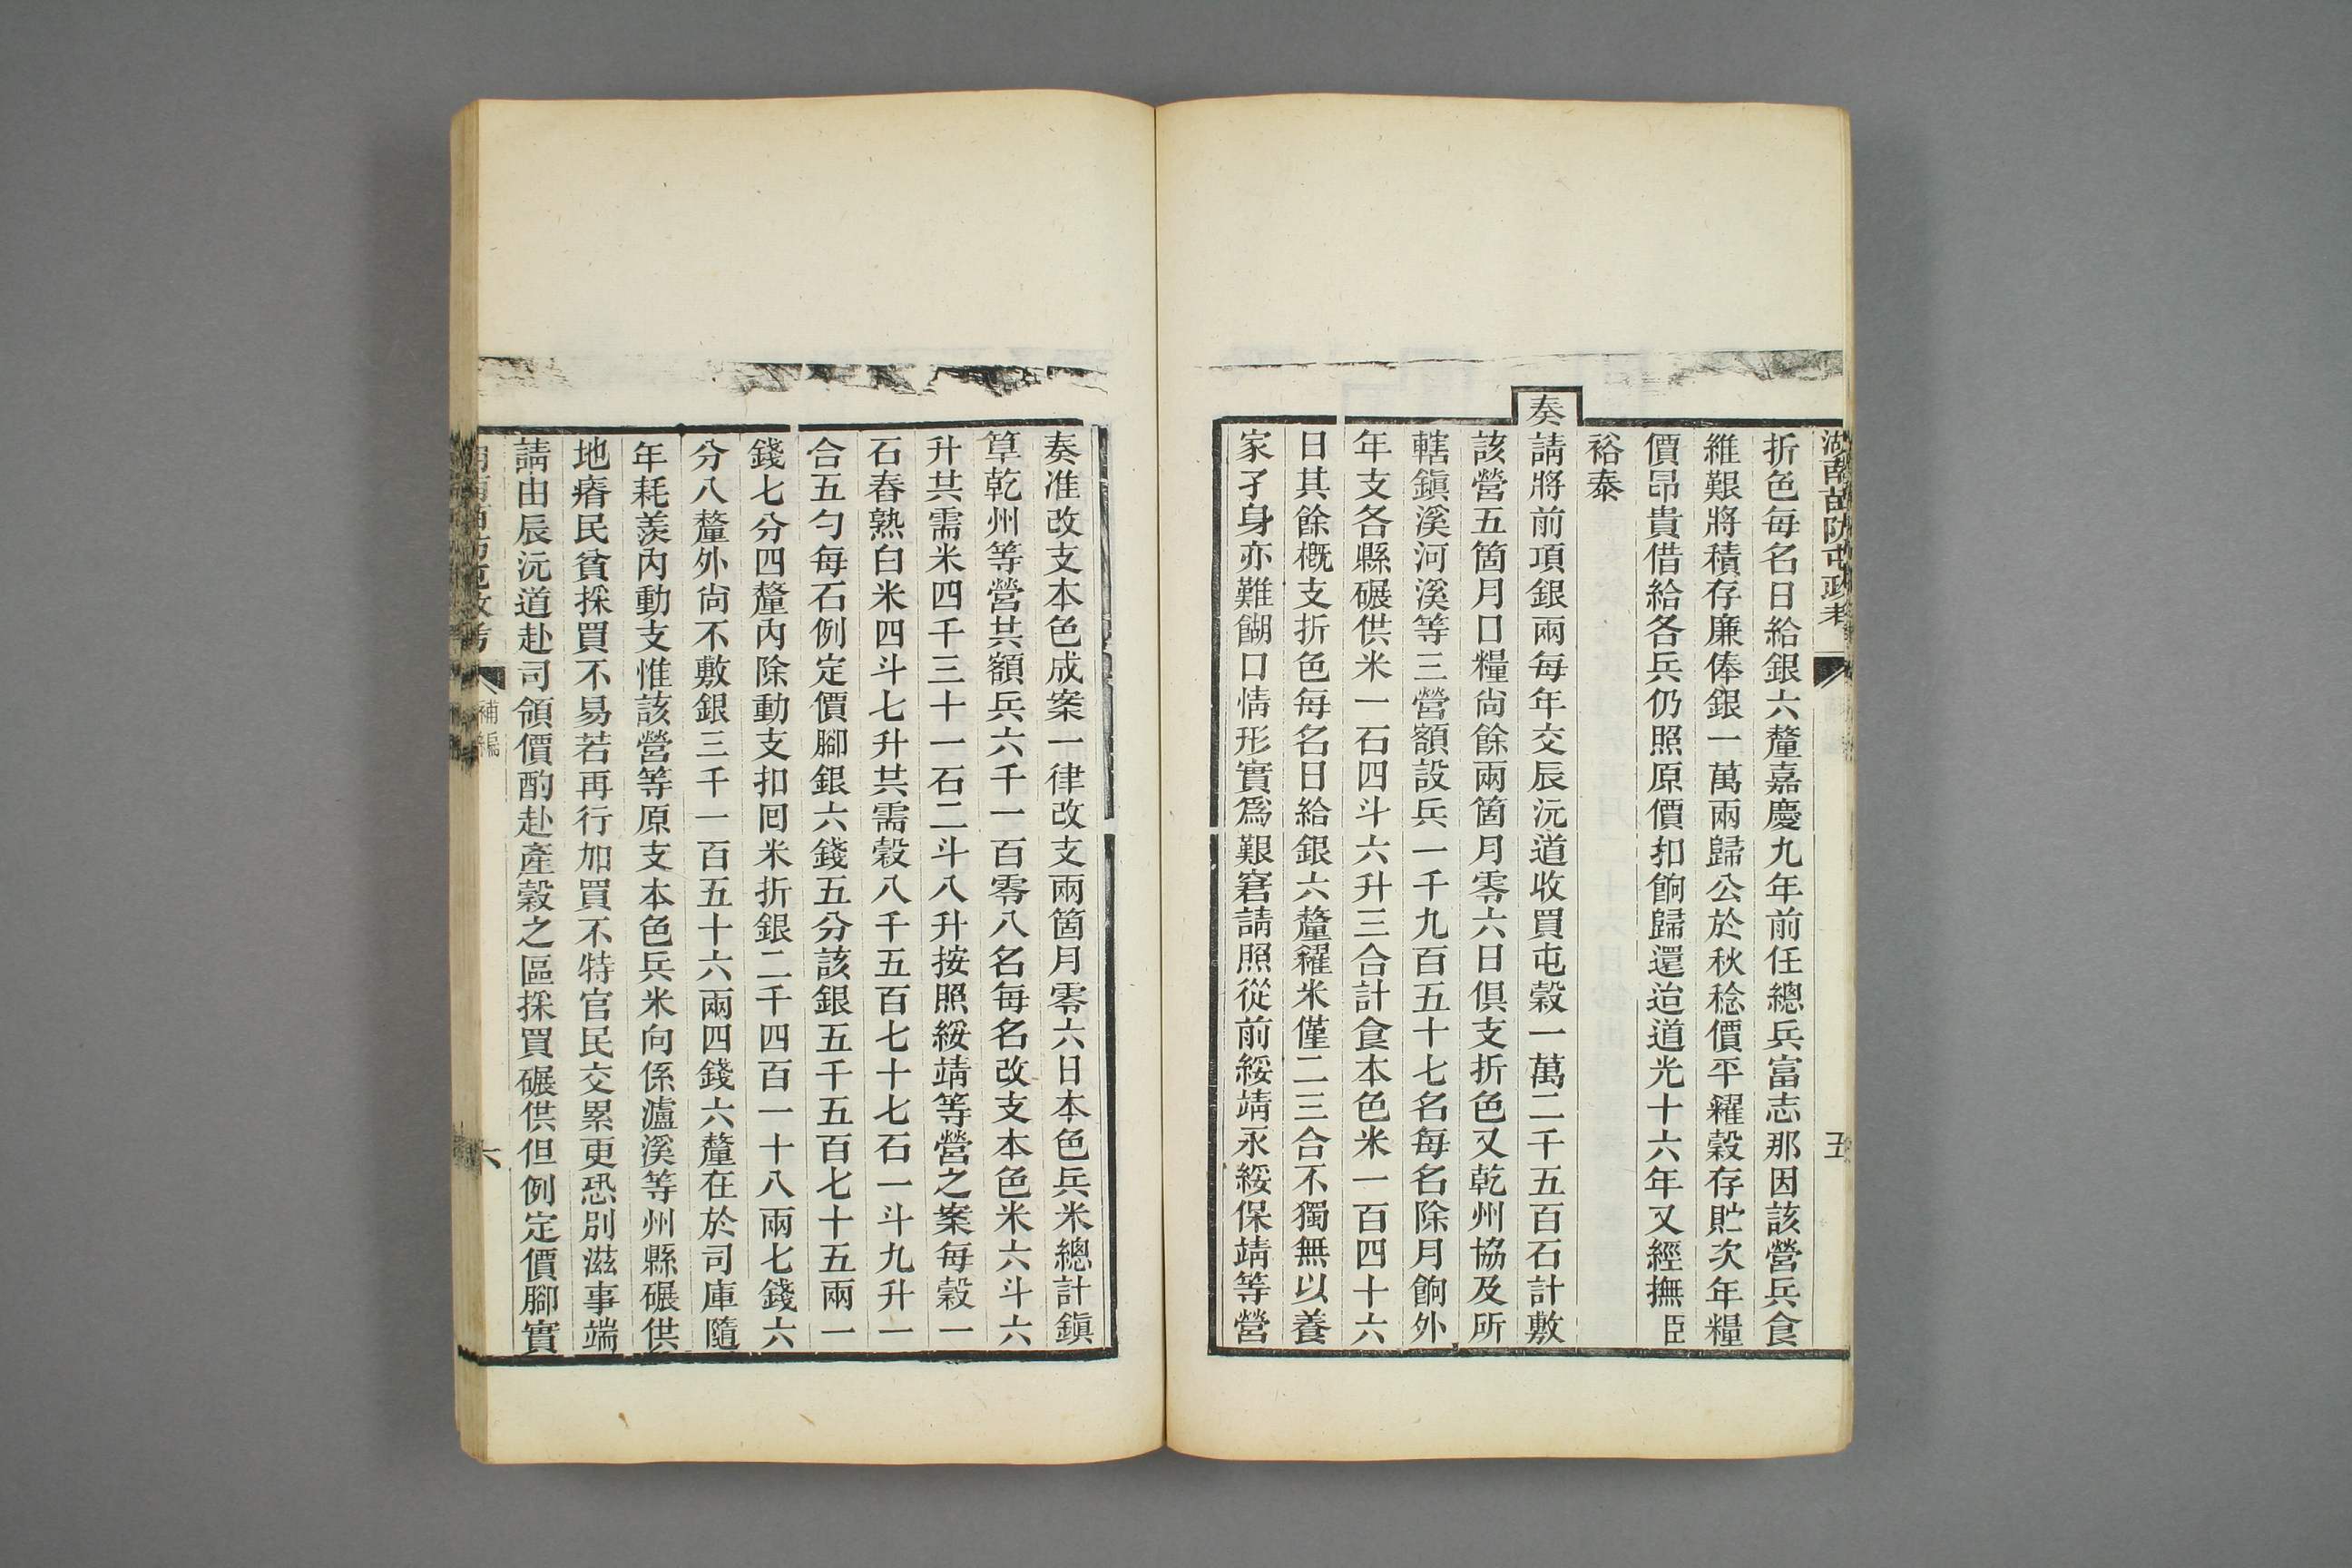 湖南苗防屯政考
五
折色每名日給銀六釐嘉慶九年前任總兵富志那因該營兵食
維艱將積存廉俸銀一萬兩歸公於秋稔價平糴穀存貯次年糧
價昂貴借給各兵仍照原價扣餉歸還迨道光十六年又經撫臣
裕泰
奏請將前項銀兩每年交辰沅道收買屯穀一萬二千五百石計敷
該營五箇月口糧尙餘兩箇月零六日俱支折色又乾州協及所
轄鎭溪河溪等三營額設兵一千九百五十七名每名除月餉外
年支各縣碾供米一石四斗六升三合計食本色米一百四十六
日其餘槪支折色每名日給銀六釐糴米僅二三合不獨無以養
家孑身亦難餬口情形實爲艱窘請照從前綏靖永綏保靖等營
奏准改支本色成案一律改支兩箇月零六日本色兵米總計鎭
筸乾州等營共額兵六千一百零八名每名改支本色米六斗六
升共需米四千三十一石二斗八升按照綏靖等營之案每穀一
石舂熟白米四斗七升共需穀八千五百七十七石一斗九升一
合五勺每石例定價腳銀六錢五分該銀五千五百七十五兩一
錢七分四釐內除動支扣囘米折銀二千四百一十八兩七錢六
分八釐外尙不敷銀三千一百五十六兩四錢六釐在於司庫隨
年耗羨內動支惟該營等原支本色兵米向係瀘溪等州縣碾供
地瘠民貧採買不易若再行加買不特官民交累更恐別滋事端
請由辰沅道赴司領價酌赴產穀之區採買碾供但例定價腳實
補編
六